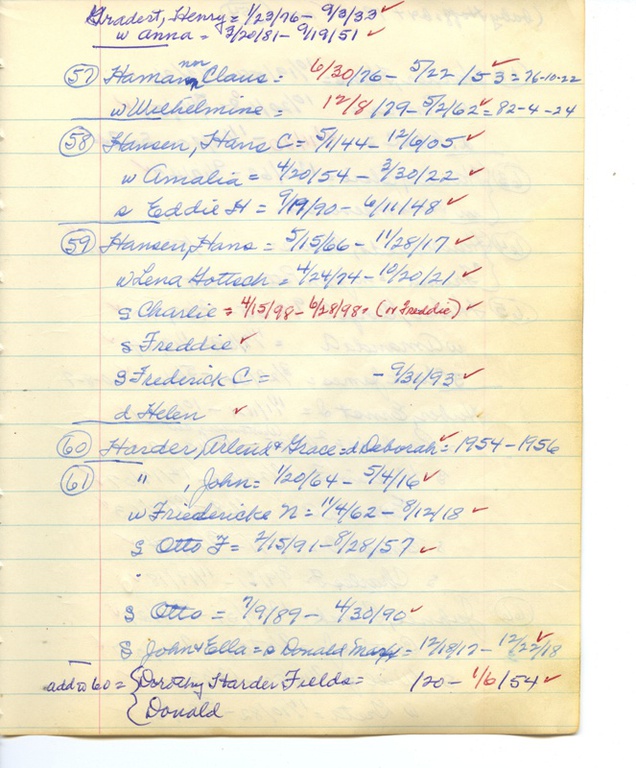 Gradert, Henry = 1/23/76 - 9/3/33 ✓
w Anna = 3/20/81 - 9/19/51 ✓
(57) Hamann Claus = 6/30/76 - 5/22/53 = 76-10-22
nn
w Wilhelmine = 12/8/79 - 5/2/62 ✓ = 82-4-24
(58) Hansen, Hans C = 5/1/44 - 12/6/05 ✓
w Amalia = 4/20/54 - 3/30/22 ✓
s Eddie H = 9/19/90 - 6/11/48 ✓
(59) Hansen, Hans = 5/15/66 - 11/28/17 ✓
w Lena Gottsch = 4/24/74 - 10/20/21 ✓
s Charlie = 4/15/98 - 6/28/98 = (or Freddie) ✓
s Freddie ✓
s Frederick C = - 9/31/93 ✓
d Helen ✓
(60) Harder, Arlend & Grace = d Deborah ✓ = 1954 - 1956
(61) " , John = 1/20/64 - 5/4/16 ✓
w Friedericke N = 11/4/62 - 8/12/18 ✓
s Otto F = 2/15/91 - 8/28/57 ✓
s Otto = 7/9/89 - 4/30/90 ✓
s John & Ella = s Donald = 12/18/17 - 12/22/18 ✓
add to 60 = { Dorothy Harder Fields = 120 - 1/6/54 ✓
{ Donald